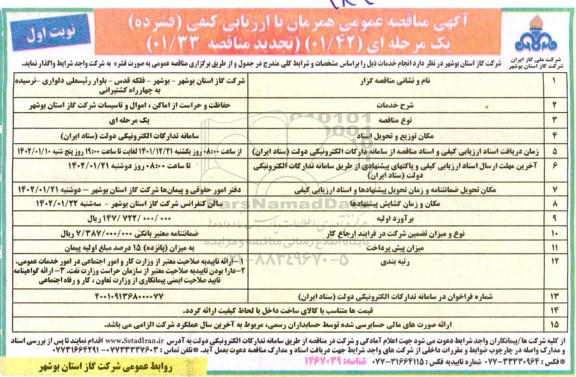 آگهی مناقصه عمومی همزمان با ارزیابی کیفی (فشرده)
یک مرحله ای (۰۱/۴۲) (تجدید مناقصه ۰۱/۳۳)
نوبت اول
شرکت ملی گاز ایران
شرکت گاز استان بوشهر
شرکت گاز استان بوشهر در نظر دارد انجام خدمات ذیل را بر اساس مشخصات و شرایط کلی مندرج در جدول و از طریق برگزاری مناقصه عمومی به صورت فشرده به شرکت واجد شرایط واگذار نماید.
۱ نام و نشانی مناقصه گزار شرکت گاز استان بوشهر - بوشهر - فلکه قدس - بلوار رئیسعلی دلواری - نرسیده به چهارراه کشتیرانی
۲ شرح خدمات حفاظت و حراست از اماکن، اموال و تاسیسات شرکت گاز استان بوشهر
۳ نوع مناقصه یک مرحله ای
۴ مکان توزیع و تحویل اسناد سامانه تدارکات الکترونیکی دولت (ستاد ایران)
۵ زمان دریافت اسناد ارزیابی کیفی و اسناد مناقصه از سامانه تدارکات الکترونیکی دولت (ستاد ایران) از ساعت ۰۸:۰۰ روز یکشنبه ۱۴۰۱/۱۲/۲۱ لغایت تا ساعت ۱۹:۰۰ روز پنج شنبه ۱۴۰۲/۰۱/۱۰
۶ آخرین مهلت ارسال اسناد ارزیابی کیفی و پاکتهای پیشنهادی از طریق سامانه تدارکات الکترونیکی دولت (ستاد ایران) تا ساعت ۰۸:۰۰ روز دوشنبه ۱۴۰۲/۰۱/۲۱
۷ مکان تحویل ضمانتنامه و زمان تحویل پیشنهادها و اسناد ارزیابی کیفی دفتر امور حقوقی و پیمان‌ها شرکت گاز استان بوشهر - دوشنبه ۱۴۰۲/۰۱/۲۱
۸ مکان و زمان گشایش پیشنهادها سالن کنفرانس شرکت گاز استان بوشهر - سه‌شنبه ۱۴۰۲/۰۱/۲۲
۹ برآورد اولیه ۱۴۷/۷۲۲/۰۰۰/۰۰۰ ریال
۱۰ نوع و میزان تضمین شرکت در فرایند ارجاع کار ضمانتنامه معتبر بانکی ۷/۳۸۷/۰۰۰/۰۰۰ ریال
۱۱ میزان پیش پرداخت به میزان (پانزده) ۱۵ درصد مبلغ اولیه پیمان
۱۲ رتبه بندی ۱- ارائه تاییدیه صلاحیت معتبر از وزارت کار و امور اجتماعی در امور خدمات عمومی.
۲- دارا بودن تاییدیه صلاحیت معتبر از سازمان حراست وزارت نفت. ۳- ارائه گواهینامه تایید صلاحیت ایمنی پیمانکاری از وزارت تعاون، کار و رفاه اجتماعی
۱۳ شماره فراخوان در سامانه تدارکات الکترونیکی دولت (ستاد ایران) ۲۰۰۱۰۹۱۳۶۸۰۰۰۰۷۷
۱۴ قیمت ها متناسب با کالای ساخت داخل با لحاظ کیفیت ارائه گردد.
۱۵ ارائه صورت های مالی حسابرسی شده توسط حسابداران رسمی، مربوط به آخرین سال عملکرد شرکت الزامی می باشد.
از کلیه شرکت ها/پیمانکاران واجد شرایط دعوت می شود جهت اعلام آمادگی و شرکت در مناقصه از طریق سامانه تدارکات الکترونیکی دولت به آدرس www.Setadiran.ir اقدام نمایند تا پس از بررسی اسناد و مدارک واصله در چارچوب ضوابط و مقررات داخلی از شرکت های واجد شرایط جهت دریافت اسناد و مدارک مناقصه دعوت بعمل آید. *تلفن تماس: ۰۷۷۳۳۳۳۷۶۰۳ - ۰۷۷۳۱۶۶۴۲۹۱
*فکس: ۳۳۲۳۰۹۶۴-۰۷۷ شماره تاییدیه فکس: ۳۱۶۶۴۱۱۵-۰۷۷ شناسه: ۱۴۶۷۰۳۹
روابط عمومی شرکت گاز استان بوشهر